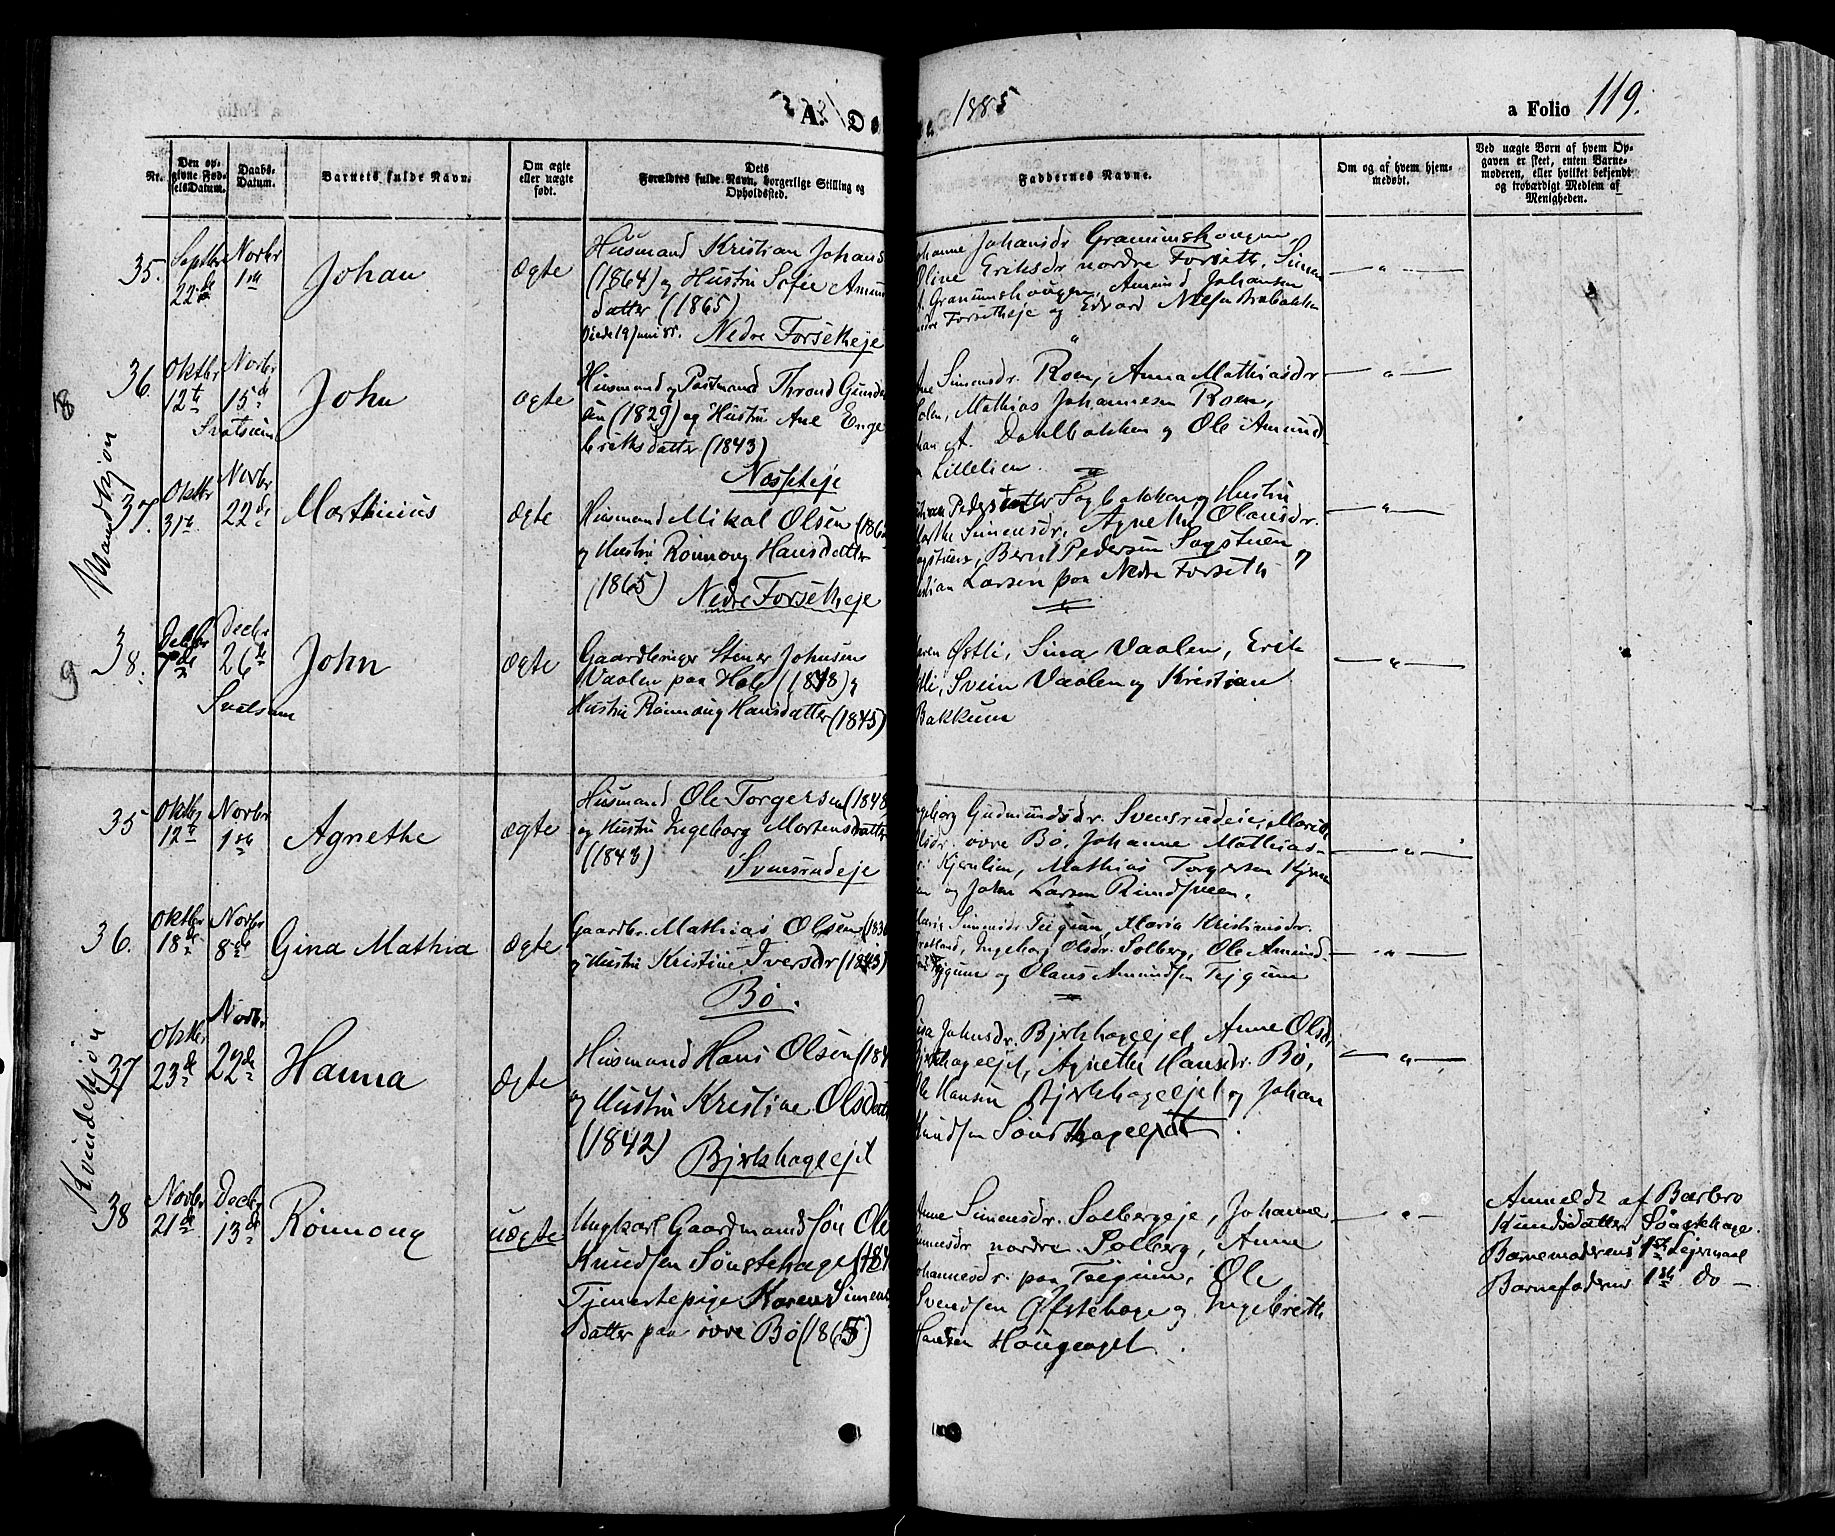 A. Dø 1885 a Folio 119.
Nr.
Den op-
givne Fød-
selsDatum.
Daabs-
Datum.
Barnets fulde Navn.
Om ægte
eller uægte
født.
Dets
Forældres fulde Navn, borgerlige Stilling og
Opholdssted.
Faddernes Navne.
Om og af hvem hjem-
medøbt.
Ved uægte Børn af hvem Op-
gaven er skeet, enten Barne-
moderen, eller hvilket bekjendt
og troværdigt Medlem af
Menigheden.
Mandkjøn
35.
Septbr
22de
Novbr
1ste
Johan
Ægte
Husmand Kristian Johans
(1864) og Hustru Sofie Amun
datter (1865)
Viede 19 Juni 85. Nedre Forsetheje
Johanne Johansdr Granumshougen
Oline Eriksdr nordre Forseth, Simen
A. Granumshougen, Amund Johansen
Forsetheje og Edvard Nilsen Brobakken
— " —
36.
18
Oktbr
12te
Novbr
15de
Svatsum
John
Ægte
Husmand og Postmand Thrond Gunder
sen (1829) og Hustru Ane Enge
bretsdatter (1843)
Næsseteje
Ane Simensdr. Roen, Anna Mathiasdr
Mathias Johannesen Roen,
A. Dahlbakken og Ole Amund
Lillelien.
— " —
37.
Oktbr
31te
Novbr
22de
Marthinius
Ægte
Husmand Mikal Olsen (186
og Hustru Rønnoug Hansdatter
(1865) Nedre Forsetheje
Pedersdatter Fogbakken og Hustru
Marthe Simensdr, Agnethe Olausdr.
Sagstuen, Bernt Pedersen Sagstuen og
Kristian Larsen paa Nedre Forseth
— " —
38.
9
Decbr
7de
Decbr
26de
Svatsum
John
Ægte
Gaardbruger Stiner Johnsen
Vaalen paa Hole (1848) og
Hustru Rønnoug Hansdatter (1845)
Karen Østli, Sina Vaalen, Erik
Østli, Svein Vaalen og Kristian
Bakkum
— " —
Kvindekjøn.
35
Oktbr
12te
Novbr
1ste
Agnethe
Ægte
Husmand Ole Torgersen (1848
og Hustru Ingeborg Mortensdatter
(1843)
Svensrudeje
Ingeborg Gudmundsdr. Svensrudeie, Marit
Olsdr. øvre Bø, Johanne Mathias-
dr. Kjernlien, Mathias Torgersen Kjern
lien og John Larsen Rundsveen.
— " —
36.
Oktbr
18de
Novbr
8de
Gina Mathia
Ægte
Gaardbr. Mathias Olsen (183
og Hustru Kristine Iversdr (1843)
Bø.
Marie Simensdr Tejgum, Maria Kristiansdr.
Ingeborg Olsdr. Solberg, Ole Amund-
sen Tejgum og Olaus Amundsen Tejgum
— " —
37
Oktbr
23de
Novbr
22de
Hanna
Ægte
Husmand Hans Olsen (184
og Hustru Kristine Olsdatter
(1842)
Bjrkhageejet
Johnsdr. Bjrkhageejet, Anne Olsdr.
Bjrkhageejet, Agnethe Hansdr. Bø,
Ole Hansen Bjrkhageejet og Johan
Knudsen Sønsthageejet.
— " —
38
Novbr
21de
Decbr
13de
Rønnoug
uægte
Ungkarl Gaardmandssøn Ole
Knudsen Sønstehage (184
Tjenestepige Karen Simens
datter paa øvre Bø (1865)
Anne Simensdr. Solbergeje, Johanne
nordre Solberg, Anne
Johannesdr. paa Tejgum, Ole
Svendsen Øfstehage og Ingebreth
Hansen Hougeejet.
— " —
Anmeldt af Barbro
Knudsdatter Sønstehage.
Barnemoderens 1ste Lejermaal
Barnefaderens 1ste do —